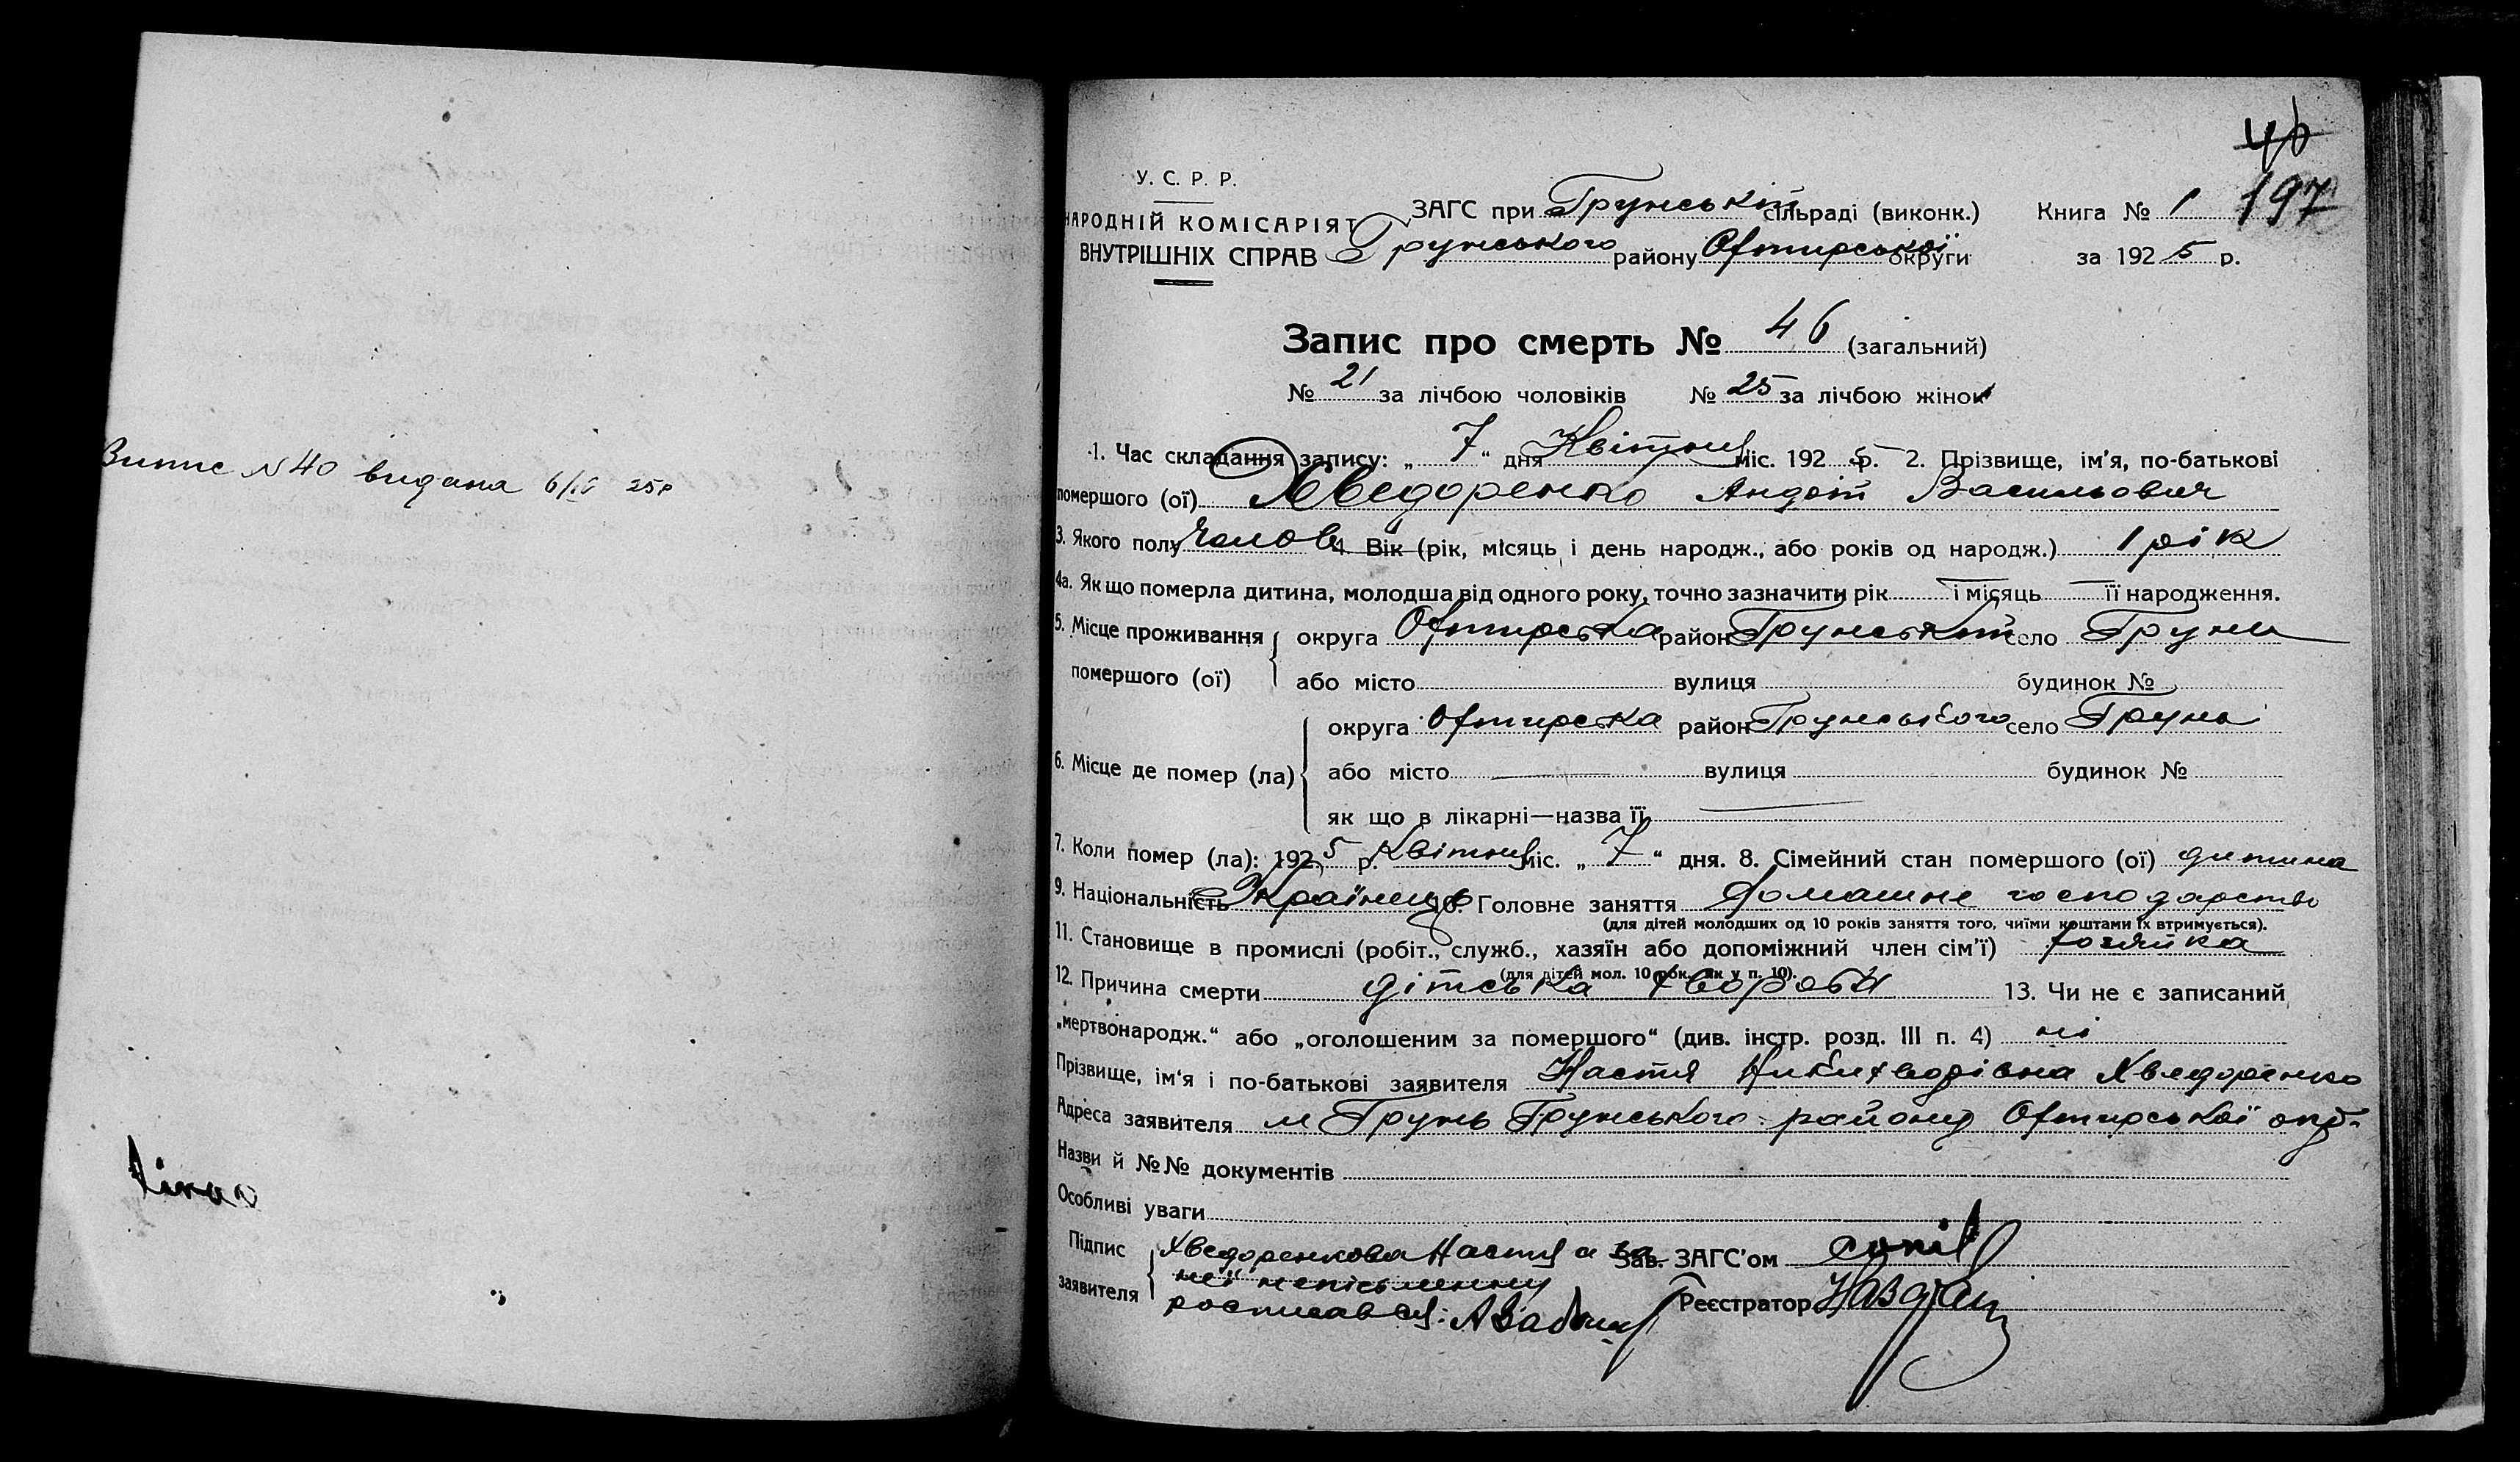 Випис N 40 видана 6/IV 25р
46
197
У. С. Р. Р.
НАРОДНІЙ КОМІСАРІЯТ
ВНУТРІШНІХ СПРАВ
ЗАГС при Грунській сільраді (виконк.) Книга № 1
Грунського району Охтирської округи за 1925 р.
Запис про смерть № 46 (загальний)
№ 21 за лічбою чоловіків № 25 за лічбою жінок
1. Час складання запису: „ 7 “ дня Квітня міс. 1925 р. 2. Прізвище, ім'я, по-батькові
помершого (ої) Хведоренко Андрій Васильович
3. Якого полу Чолов 4 Вік (рік, місяць і день народж., або років од народж.) 1 рік
4а. Як що померла дитина, молодша від одного року, точно зазначити рік — і місяць — її народження.
5. Місце проживання помершого (ої) округа Охтирська район Грунський село Грунь
або місто вулиця будинок №
6. Місце де помер (ла) округа Охтирська район Грунського село Грунь
або місто — вулиця будинок №
як що в лікарні—назва її —
7. Коли помер (ла): 1925 р. Квітня міс. „ 7 “ дня. 8. Сімейний стан помершого (ої) дитина
9. Національність Українець 10. Головне заняття домашнє господарство
(для дітей молодших од 10 років заняття того, чиїми коштами їх втримується).
11. Становище в промислі (робіт., служб., хазяїн або допоміжний член сім'ї) хозяйка
(для дітей мол. 10 рок. як у п. 10).
12. Причина смерти дітська хвороба 13. Чи не є записаний
„мертвонародж.“ або „оголошеним за помершого“ (див. інстр. розд. III п. 4) ні
Прізвище, ім'я і по-батькові заявителя Настя Хведоренко
Адреса заявителя м Грунь Грунського району Охтирської окр.
Назви й №№ документів
Особливі уваги
Підпис заявителя Хведоренкова Настя а за Зав. ЗАГС'ом
неї непісьменну
росписався: Реєстратор